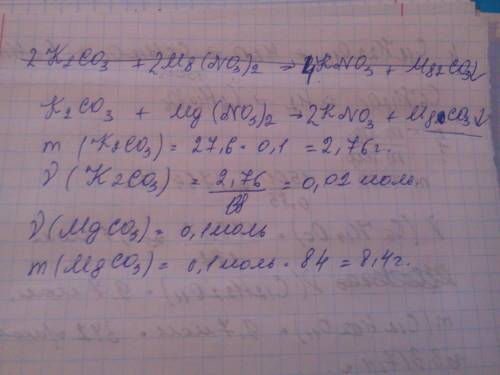 2K2CO3 + 2Mg(NO3)2 → 4KNO3 + Mg2CO3↓
K2CO3 + Mg(NO3)2 → 2KNO3 + MgCO3↓
m (K2CO3) = 27,6 · 0,1 = 2,76г.
ν (K2CO3) = 2,76 / = 0,02 моль
ν (MgCO3) = 0,1 моль
m (MgCO3) = 0,1 моль · 84 = 8,4г.